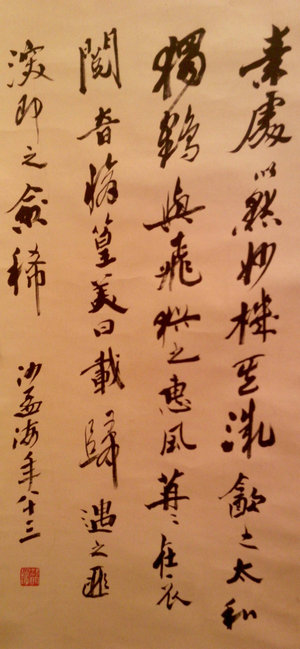 素處以默妙機其微飲之太和
獨鶴與飛猶之惠風荏苒在衣
閱音修篁美曰載歸遇之匪
深即之愈稀
沙孟海年八十三